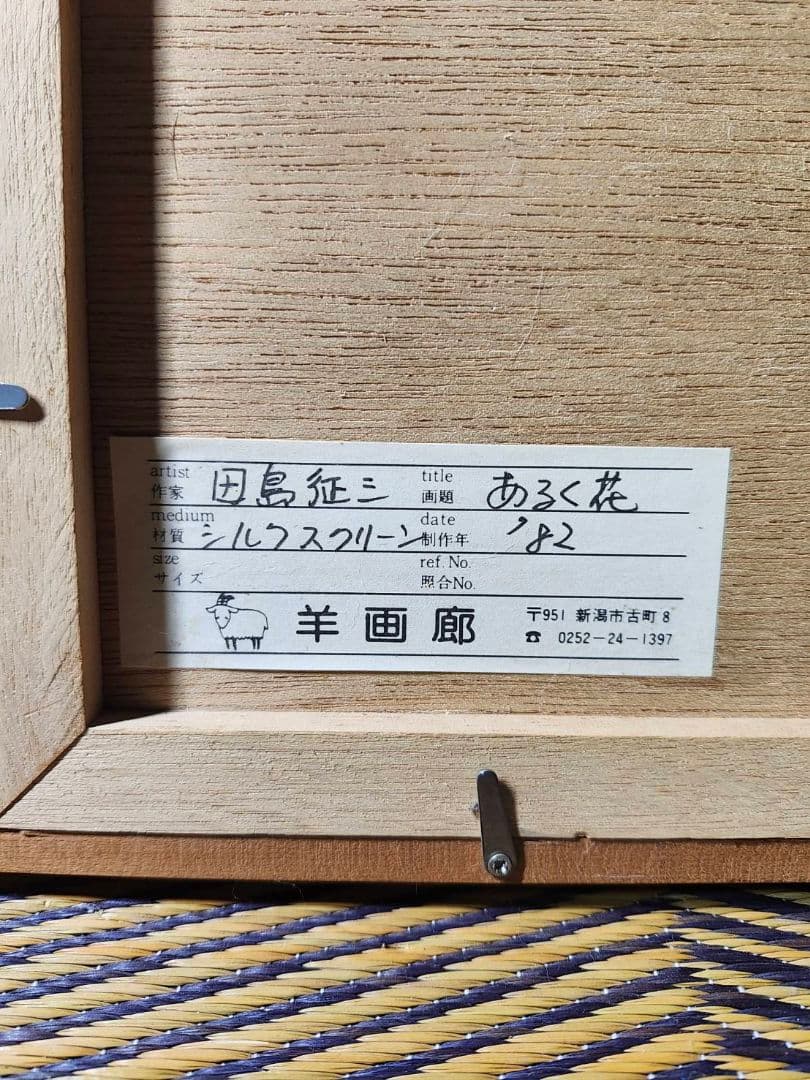 artist
作家 田島征三
title
画題 あるく花
medium
材質 シルクスクリーン
date
制作年 '82
size
サイズ
ref.No.
照合No.
羊画廊
〒951 新潟市古町8
☎ 0252-24-1397